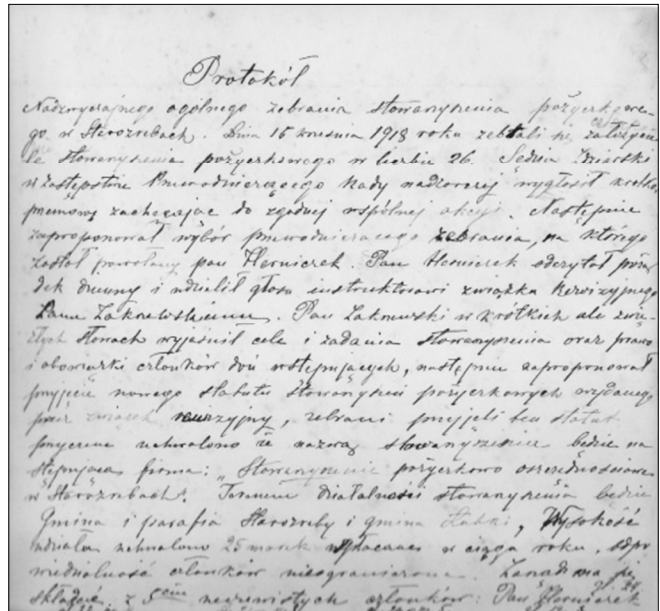 Protokół
Nadzwyczajnego ogólnego zebrania stowarzyszenia pożyczkowe-
go w Starozrebach. Dnia 15 września 1918 roku zebrali się założycie
le stowarzyszenia pożyczkowego w liczbie 26. Sędzia
w zastępstwie Przewodniczącego Rady nadzorczej wygłosił krótką
przemowę zachęcając do zgodnej wspólnej akcji. Następnie
zaproponował wybór przewodniczącego zebrania, na którego
został powołany pan Herniczek. Pan Herniczek odczytał porzą
dek dzienny i udzielił głosu instruktorowi związku Rewizyjnego
Panu Zakrzewskiemu. Pan Zakrzewski w krótkich ale zwię-
złych słowach wyjaśnił cele i zadania stowarzyszenia oraz prawa
i obowiązki członków doń wstępujących, następnie zaproponował
przyjęcie nowego statutu stowarzyszeń pożyczkowych wydanego
przez związek rewizyjny, zebrani przyjęli ten statut
uchwalono że nazwą stowarzyszenia będzie na
stępująca firma: "Stowarzyszenie pożyczkowo oszczędnościowe
w Starozrebach". Terenem działalności stowarzyszenia będzie
Gmina i parafia Starozreby i gmina Wysokość
udziału uchwalono 25 marek wpłacane w ciągu roku, odpo
wiedzialność członków nieograniczona. Zarząd ma się
składać z 5ciu rzeczywistych członków: Pan Herniczek